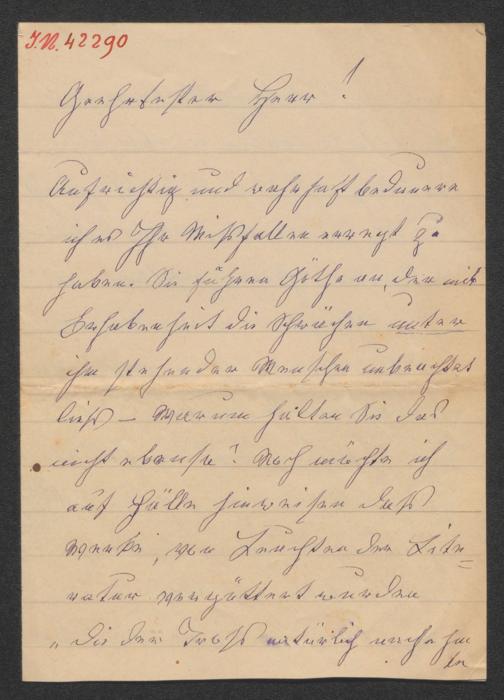 I.N. 42290
Geehrtester Herr!
Aufrichtig und wahrhaft bedauere
ich es Ihr Missfallen erregt zu
haben. Sie führen Göthe an, der mit
Erhabenheit die Schwächen unter
ihm stehender Menschen unbeachtet
liess – warum halten Sie das
nicht ebenso? Noch möchte ich
auf Fälle hinweisen dass
Werke, von Leuchten der Lite=
ratur vergöttert wurden
„die der Tross natürlich nachahm
te